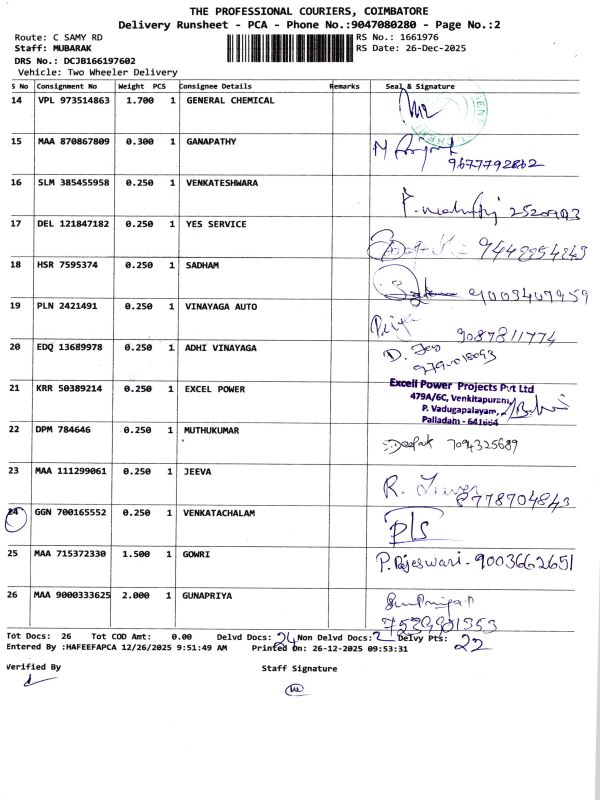 THE PROFESSIONAL COURIERS, COIMBATORE
Delivery Runsheet - PCA - Phone No.:9047080280 - Page No.:2
Route: C SAMY RD RS No.: 1661976
Staff: MUBARAK RS Date: 26-Dec-2025
DRS No.: DCJB166197602
Vehicle: Two Wheeler Delivery
S No Consignment No Weight PCS Consignee Details Remarks Seal & Signature
14 VPL 973514863 1.700 1 GENERAL CHEMICAL
15 MAA 870867809 0.300 1 GANAPATHY
16 SLM 385455958 0.250 1 VENKATESHWARA
17 DEL 121847182 0.250 1 YES SERVICE
18 HSR 7595374 0.250 1 SADHAM
19 PLN 2421491 0.250 1 VINAYAGA AUTO Priya 9087811774
20 EDQ 13689978 0.250 1 ADHI VINAYAGA D.
21 KRR 50389214 0.250 1 EXCEL POWER
Excell Power Projects Pvt Ltd
479A/6C, Venkitapuram,
P. Vadugapalayam,
Palladam - 641664
22 DPM 784646 0.250 1 MUTHUKUMAR Deepak 7094325689
23 MAA 111299061 0.250 1 JEEVA R. 8778704843
24 GGN 700165552 0.250 1 VENKATACHALAM P/S
25 MAA 715372330 1.500 1 GOWRI P. Rajeswari - 9003662651
26 MAA 9000333625 2.000 1 GUNAPRIYA
Tot Docs: 26 Tot COD Amt: 0.00 Delvd Docs: 24 Non Delvd Docs: 2 Delvy Pts: 22
Entered By :HAFEEFAPCA 12/26/2025 9:51:49 AM Printed On: 26-12-2025 09:53:31
Verified By Staff Signature